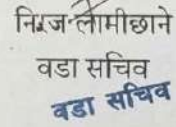 निरज लामीछाने
वडा सचिव
वडा सचिव